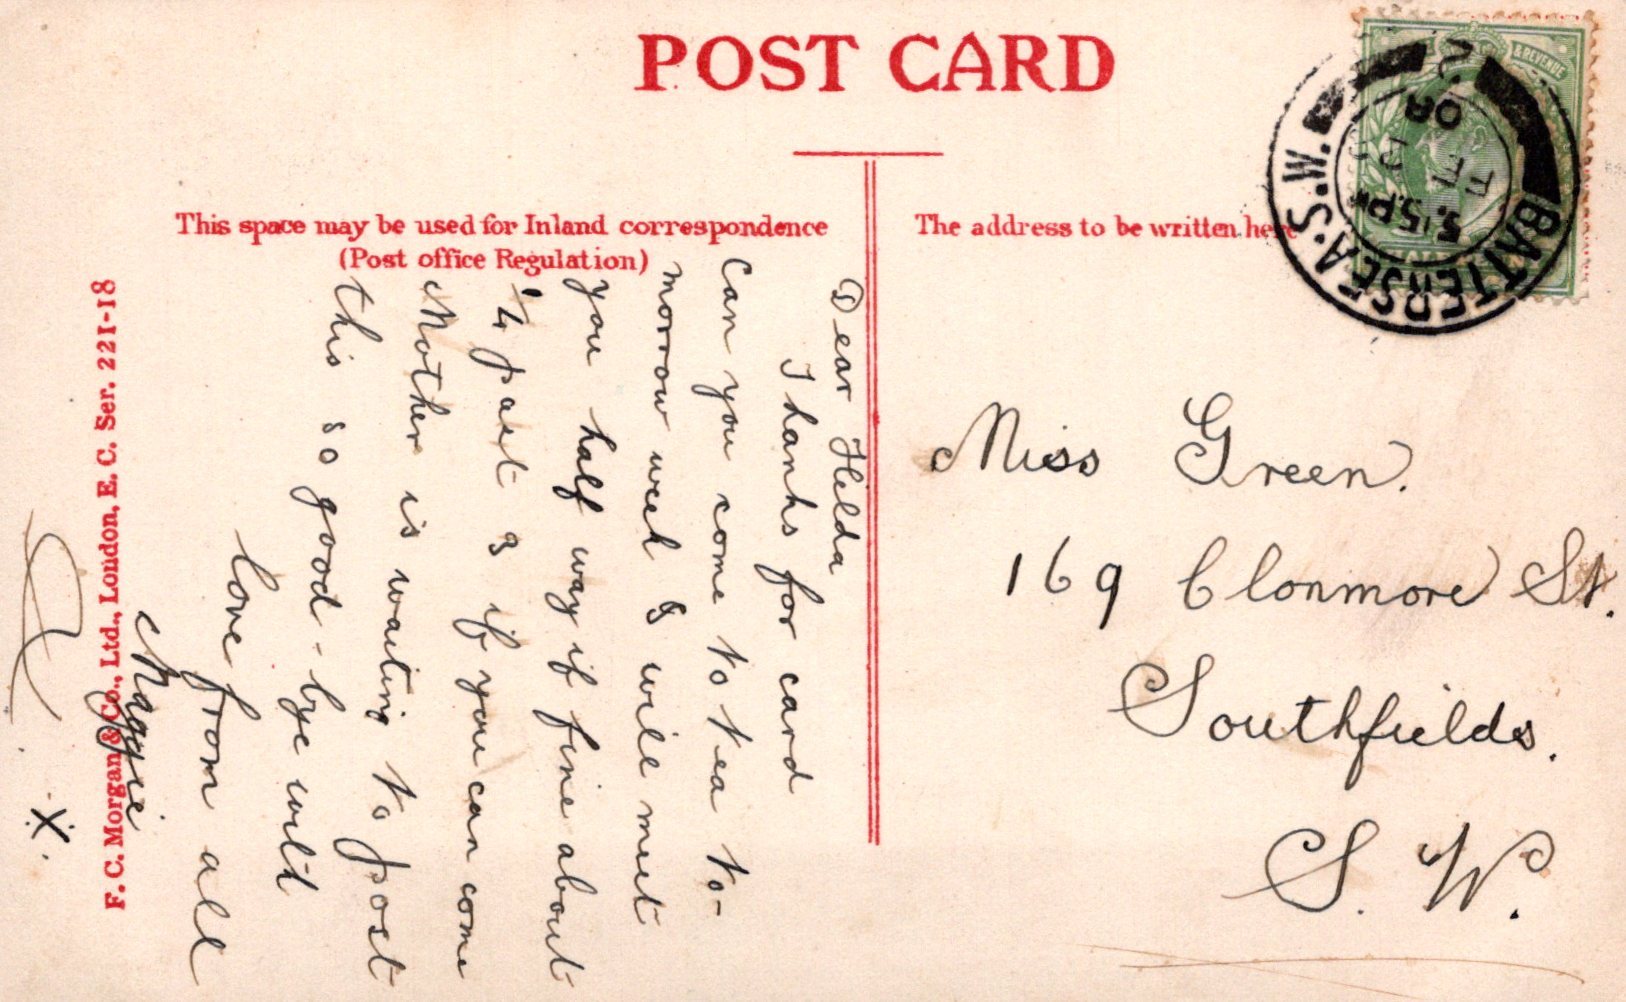 POST CARD
This space may be used for Inland correspondence
(Post office Regulation)
The address to be written here
& REVENUE
BATTERSEA.S.W.
5.15PM
08
2
Dear Hilda
Thanks for card
Can you come to tea to-
morrow week & will meet
you half way if fine about
1/4 past 3 if you can come
Mother is waiting to post
this so good-bye with
love from all
Maggie
X
Miss Green.
169 Clonmore St.
Southfields.
S. W.
F. C. Morgan & Co., Ltd., London, E. C. Ser. 221-18